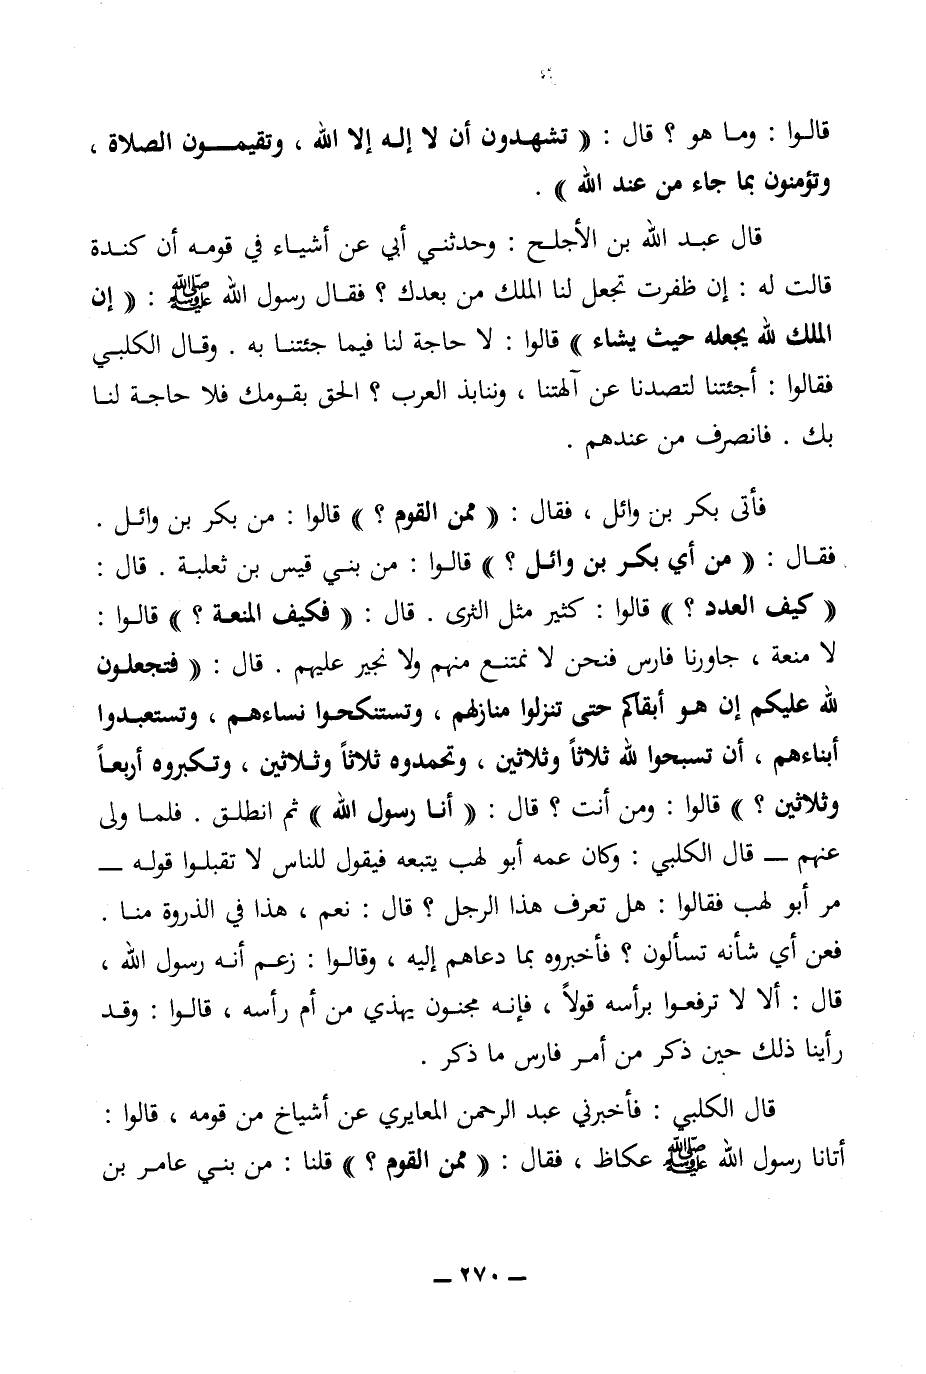 قالوا : وما هو ؟ قال : « تشهدون أن لا إله إلا الله ، وتقيمون الصلاة ،
وتؤمنون بما جاء من عند الله » .
قال عبد الله بن الأجلح : وحدثني أبي عن أشياء في قومه أن كندة
قالت له : إن ظفرت تجعل لنا الملك من بعدك ؟ فقال رسول الله ﷺ : « إن
الملك لله يجعله حيث يشاء » قالوا : لا حاجة لنا فيما جئتنا به . وقال الكلبي
فقالوا : أجئتنا لتصدنا عن آلهتنا ، وننابذ العرب ؟ الحق بقومك فلا حاجة لنا
بك . فانصرف من عندهم .
فأتى بكر بن وائل ، فقال : « ممن القوم ؟ » قالوا : من بكر بن وائل .
فقال : « من أي بكر بن وائل ؟ » قالوا : من بني قيس بن ثعلبة . قال :
« كيف العدد ؟ » قالوا : كثير مثل الثرى . قال : « فكيف المنعة ؟ » قالوا :
لا منعة ، جاورنا فارس فنحن لا نمتنع منهم ولا نجير عليهم . قال : « فتجعلون
لله عليكم إن هو أبقاكم حتى تنزلوا منازلهم ، وتستنكحوا نساءهم ، وتستعبدوا
أبناءهم ، أن تسبحوا لله ثلاثاً وثلاثين ، وتحمدوه ثلاثاً وثلاثين ، وتكبروه أربعاً
وثلاثين ؟ » قالوا : ومن أنت ؟ قال : « أنا رسول الله » ثم انطلق . فلما ولى
عنهم — قال الكلبي : وكان عمه أبو لهب يتبعه فيقول للناس لا تقبلوا قوله —
مر أبو لهب فقالوا : هل تعرف هذا الرجل ؟ قال : نعم ، هذا في الذروة منا .
فعن أي شأنه تسألون ؟ فأخبروه بما دعاهم إليه ، وقالوا : زعم أنه رسول الله ،
قال : ألا لا ترفعوا برأسه قولاً ، فإنه مجنون يهذي من أم رأسه ، قالوا : وقد
رأينا ذلك حين ذكر من أمر فارس ما ذكر .
قال الكلبي : فأخبرني عبد الرحمن المعايري عن أشياخ من قومه ، قالوا :
أتانا رسول الله ﷺ عكاظ ، فقال : « ممن القوم ؟ » قلنا : من بني عامر بن
— ٢٧٠ —